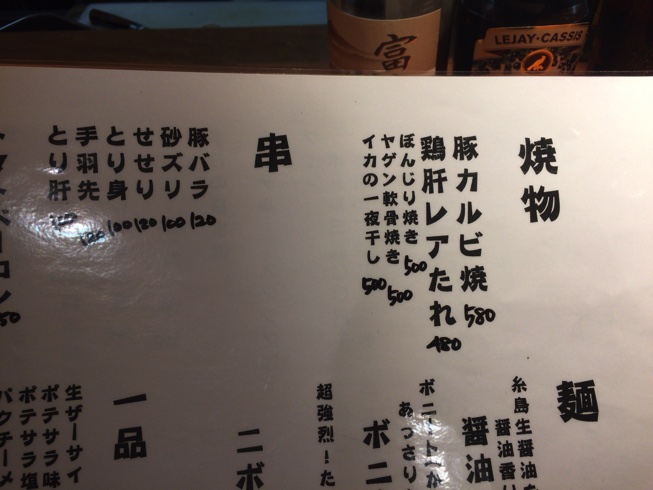 富
LEJAY・CASSIS
焼物
豚カルビ焼 580
鶏肝レアたれ 480
ぼんじり焼き 500
ヤゲン軟骨焼き 500
イカの一夜干し 500
串
豚バラ 120
砂ズリ 100
せせり 120
とり身 100
手羽先 120
とり肝
麺
糸島生醤油
醤油香り
醤油
ボニ
あっさり
超強烈!た
ニボ
一品
生ザーサイ
ポテサラ味
ポテサラ塩
パクチーメ